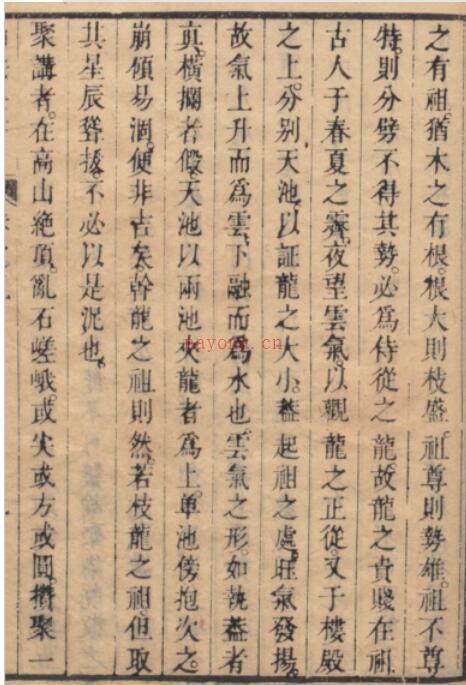 之有祖。猶木之有根。根大則枝盛。祖尊則勢雄。祖不尊
特。則分劈不得其勢。必爲侍從之龍。故龍之貴賤在祖
古人于春夏之霽。夜望雲氣。以觀龍之正從。又于樓殿
之上。分别天池。以証龍之大小。葢起祖之處。旺氣發揚。
故氣上升而爲雲。下融而爲水也。雲氣之形。如執葢者
真。橫攔者假。天池以兩池夾龍者爲上。單池傍抱次之。
崩傾易涸。便非吉矣。幹龍之祖則然。若枝龍之祖。但取
其星辰聳拔。不必以是泥也。
聚講者。在高山絶頂。亂石嵯峨。或尖或方或圓。攢聚一
payone.cn